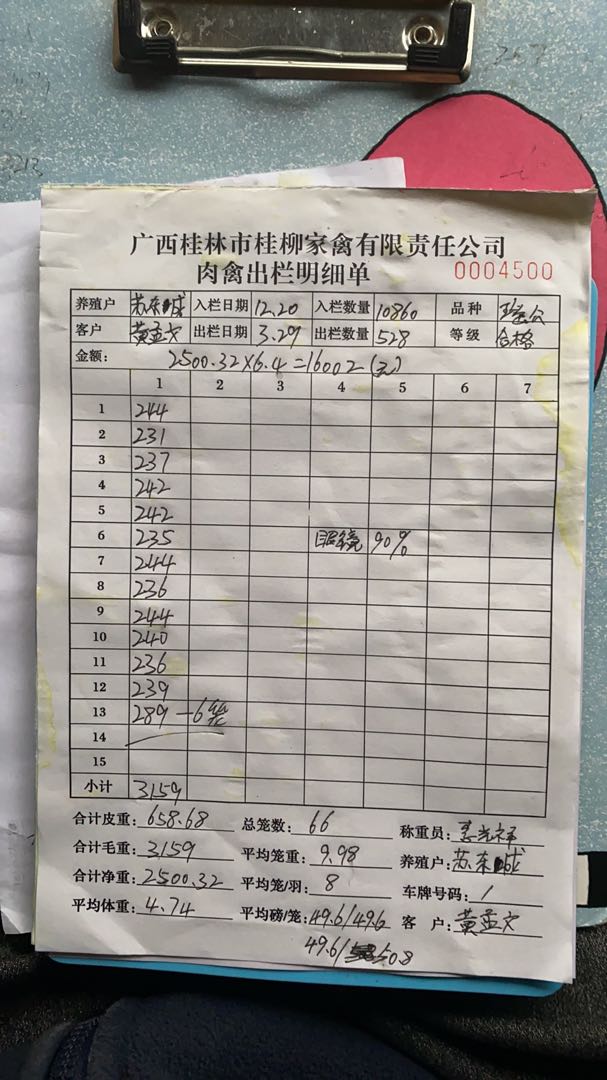 广西桂林市桂柳家禽有限责任公司
肉禽出栏明细单 0004500
养殖户 苏东成 入栏日期 12.20 入栏数量 10860 品种
客户 黄孟文 出栏日期 3.29 出栏数量 528 等级 合格
金额: 2500.32×6.4=16002(元)
1 2 3 4 5 6 7
1 244
2 231
3 237
4 242
5 242
6 235 眼镜 90%
7 244
8 236
9 244
10 240
11 236
12 239
13 289 -6笼
14
15
小计 3159
合计皮重: 658.68 总笼数: 66 称重员:
合计毛重: 3159 平均笼重: 9.98 养殖户: 苏东成
合计净重: 2500.32 平均笼/羽: 8 车牌号码: /
平均体重: 4.74 平均磅/笼: 49.6/49.6 客 户: 黄孟文
49.6/50.8